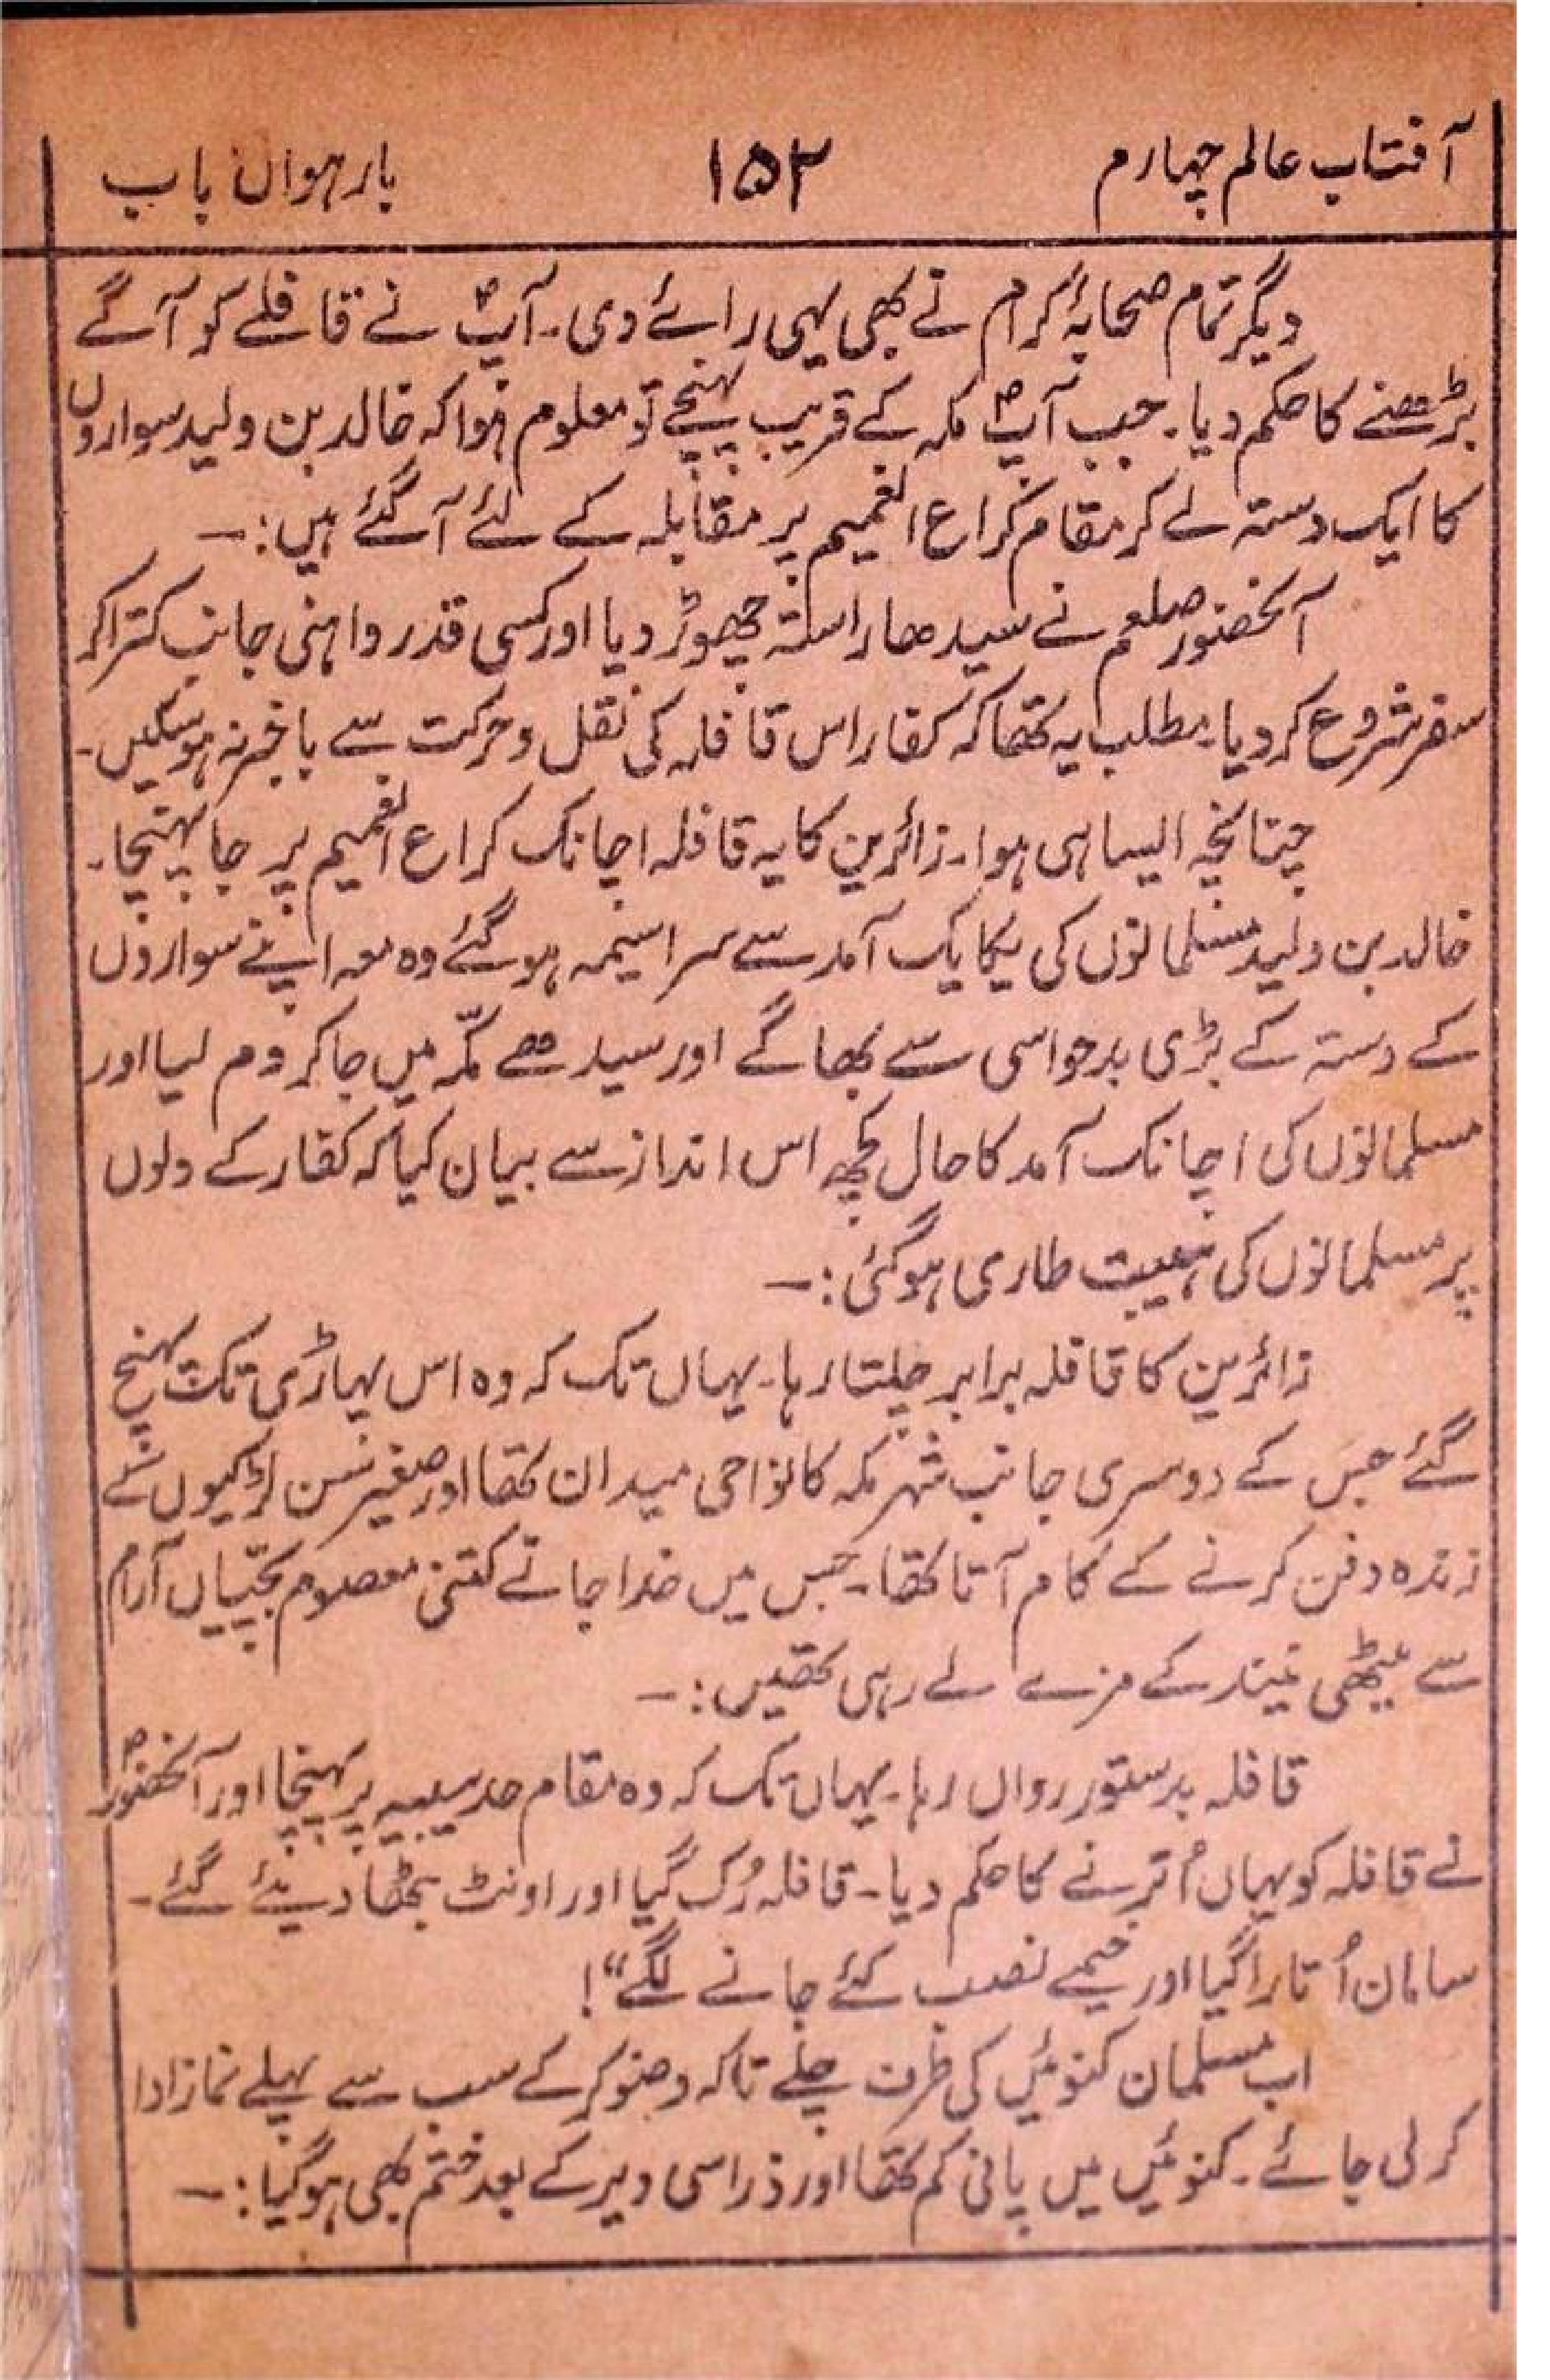 آفتاب عالم چہارم ۱۵۲ بارہواں باب
دیگر تمام صحابۂ کرام نے بھی یہی رائے دی۔ آپؐ نے قافلے کو آگے
بڑھنے کا حکم دیا۔ جب آپؐ مکہ کے قریب پہنچے تو معلوم ہوا کہ خالد بن ولید سواروں
کا ایک دستہ لے کر مقام کراع الغمیم پر مقابلہ کے لئے آ گئے ہیں:۔
آنحضور صلعم نے سیدھا راستہ چھوڑ دیا اور کسی قدر داہنی جانب کترا کر
سفر شروع کر دیا۔ مطلب یہ تھا کہ کفار اس قافلہ کی نقل و حرکت سے باخبر نہ ہو سکیں۔
چنانچہ ایسا ہی ہوا۔ زائرین کا یہ قافلہ اچانک کراع الغمیم پر جا پہنچا۔
خالد بن ولید مسلمانوں کی یکایک آمد سے سراسیمہ ہو گئے وہ معہ اپنے سواروں
کے دستہ کے بڑی بدحواسی سے بھاگے اور سیدھے مکّہ میں جا کر دم لیا اور
مسلمانوں کی اچانک آمد کا حال کچھ اس انداز سے بیان کیا کہ کفار کے دلوں
پر مسلمانوں کی ہیبت طاری ہو گئی:۔
زائرین کا قافلہ برابر چلتا رہا۔ یہاں تک کہ وہ اس پہاڑی تک پہنچ
گئے جس کے دوسری جانب شہر مکہ کا نواحی میدان تھا اور صغیر سن لڑکیوں کے
زندہ دفن کرنے کے کام آتا تھا۔ جس میں خدا جانے کتنی معصوم بچّیاں آرام
سے میٹھی نیند کے مزے لے رہی تھیں:۔
قافلہ بدستور رواں رہا۔ یہاں تک کہ وہ مقام حدیبیہ پر پہنچا اور آنحضورؐ
نے قافلہ کو یہاں اُترنے کا حکم دیا۔ قافلہ رُک گیا اور اونٹ بٹھا دیئے گئے۔
سامان اُتارا گیا اور خیمے نصب کئے جانے لگے“!
اب مسلمان کنوئیں کی طرف چلے تاکہ وضو کر کے سب سے پہلے نماز ادا
کر لی جائے۔ کنوئیں میں پانی کم تھا اور ذرا سی دیر کے بعد ختم بھی ہو گیا:۔